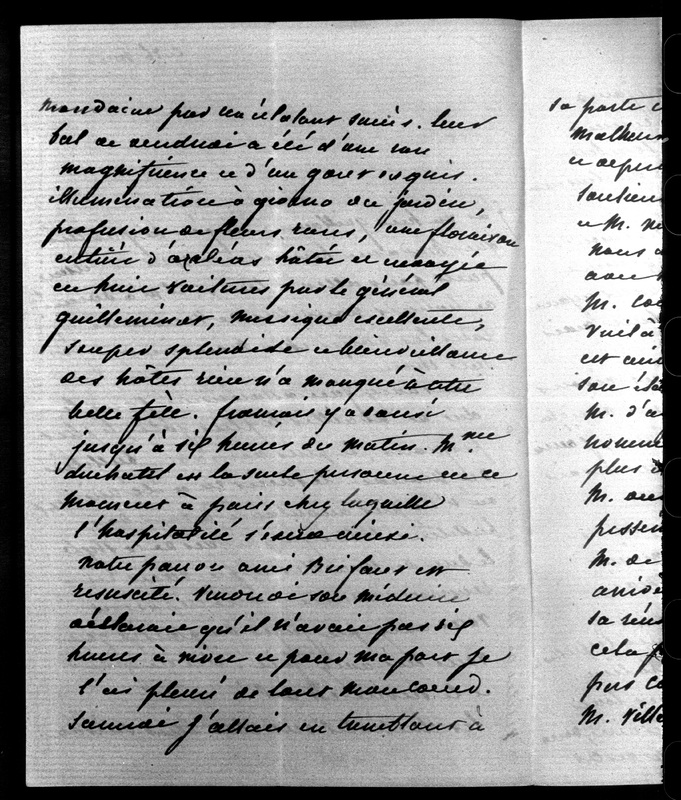 mondaine par un éclatant succès. leur
bal de vendredi a été d'une rare
magnificence et d'un goût exquis.
illumination à giorno du jardin,
profusion de fleurs rares, une floraison
entière d'azaléas hâtée et envoyée
en huit voitures par le général
guilleminot, musique excellente,
souper splendide et bienveillance
des hôtes rien n'a manqué à cette
belle fête. français y a dansé
jusqu'à six heures du matin. Mme
duchatel est la seule personne en ce
moment à paris chez laquelle
l'hospitalité s'exerce ainsi.
notre pauvre ami Brifaut est
ressuscité. vendredi son médecin
déclarait qu'il n'avait pas six
heures à vivre et pour ma part je
l'ai pleuré de tout mon cœur.
samedi j'allais en tremblant à
sa porte
malheur
et depuis
soutien
et M.
nous
avec
M.
voilà
est
son
M. d'a
nomm
plus
M.
M. de
arrivé
sa
cela
M. Ville